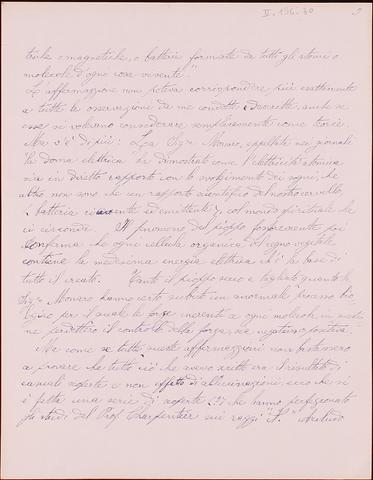 II. 136. 30
triche o magnetiche, o batterie formate da tutti gli atomi o
molecole d'ogni cosa vivente."
Le affermazioni non poteva corrispondere più esattamente
a tutte le osservazioni da me condotte e descritte, anche se
esse si volevano considerare semplicemente come teorie.
Ma c'è di più: La Sig.ra Monaro, appellata nei giornali
"la donna elettrica" ha dimostrato come l'elettricità atomica
sia in diretto rapporto con lo svolgimento dei sogni, che
altro non sono che un rapporto scientifico del nostro cervello,
(batteria ricevente ed emittente), col mondo spirituale che
ci circonda. Il fenomeno del pioppo fosforescente poi
conferma che ogni cellula organica del regno vegetale
contiene la medesima energia elettrica ch'è la base di
tutto il creato. Tanto il pioppo secco e tagliato quanto la
Sig.ra Monaro hanno certo subito un anormale processo
per il quale le forze inerenti a ogni molecola in
ne perdettero il controllo della forza negativa o positiva.
Ma come se tutte queste affermazioni non bastassero
a provare che tutto ciò che avevo scritto era il risultato di
casuali scoperte e non effetto di allucinazione, ecco che si
è fatta una serie di scoperte che hanno perfezionato
gli studi del Prof. Charpentier sui raggi